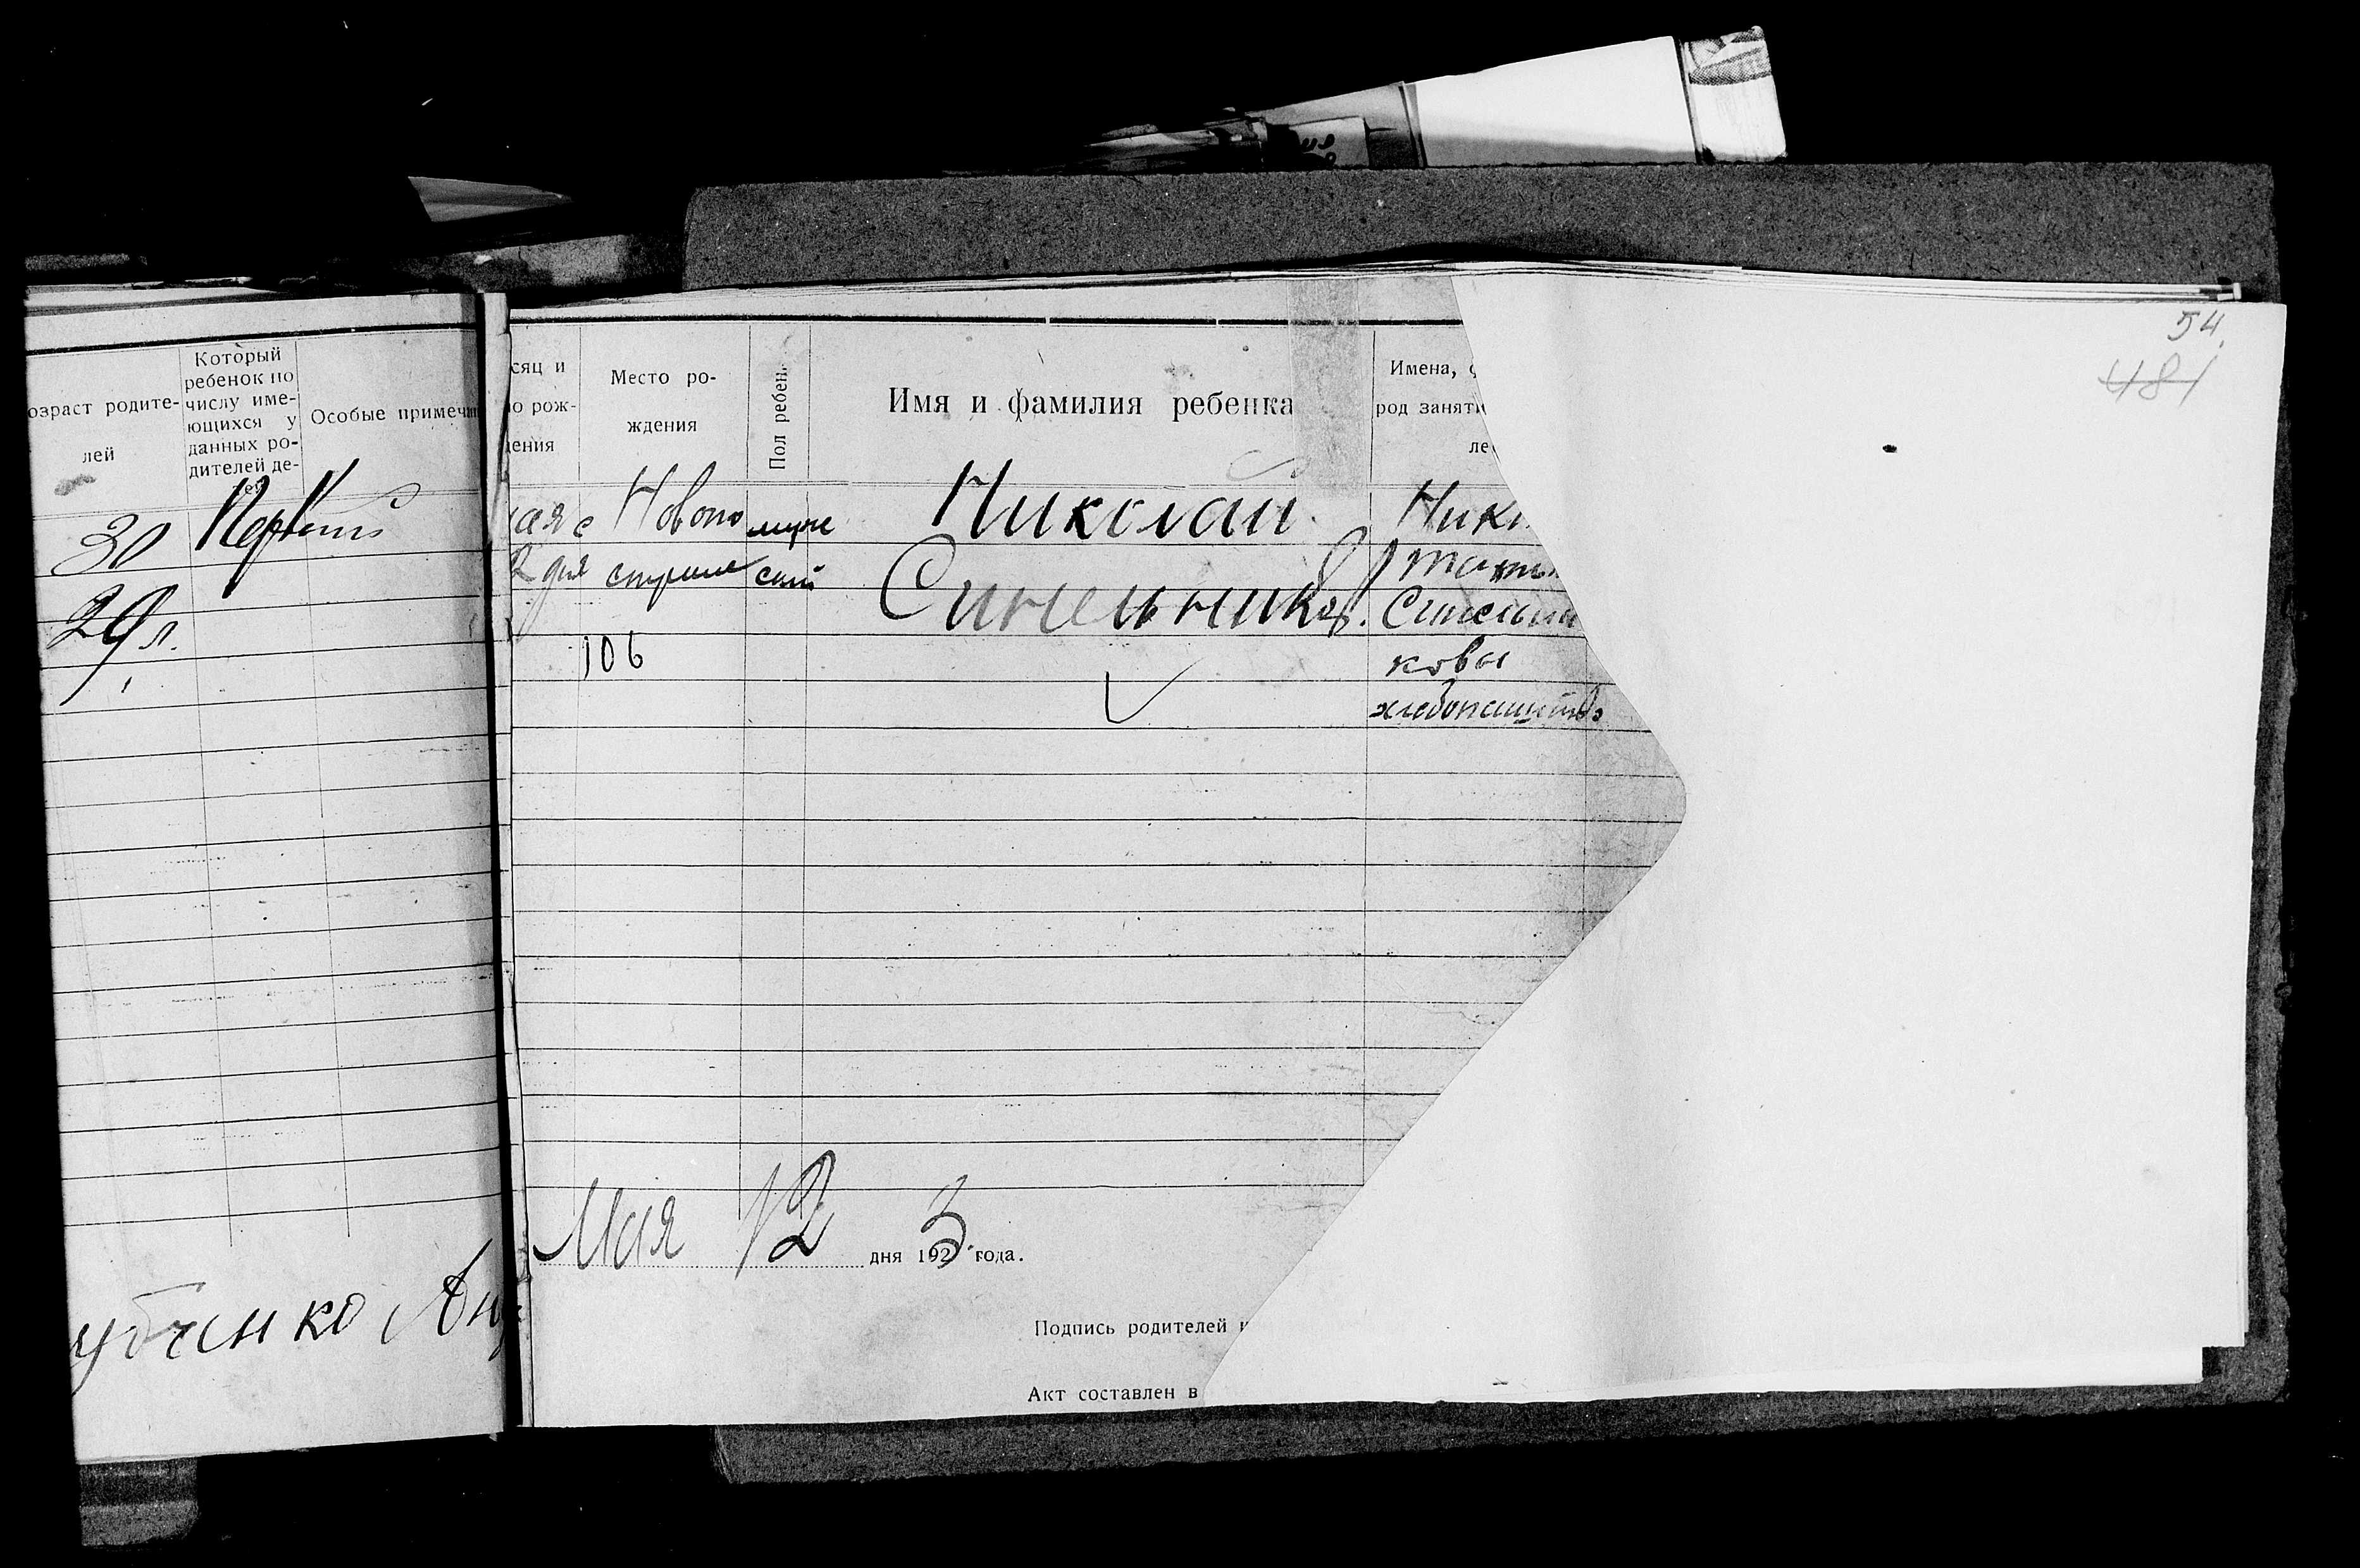 54
481
озраст родите-
лей
Который
ребенок по
числу име-
ющихся у
данных ро-
дителей де-
тей
Особые примеча
30
Первый
29 л.
сяц и
о рож-
ения
Место ро-
ждения
Пол ребен.
Имя и фамилия ребенка
Имена,
род заняти
ле
ая с
2 дня
Новопо
муж
ской
Николай
Синельников.
Ники
Синельни
ковы
хлебопашество
106
Мая 12 дня 1923 года.
Подпись родителей и
Акт составлен в
енко Ан